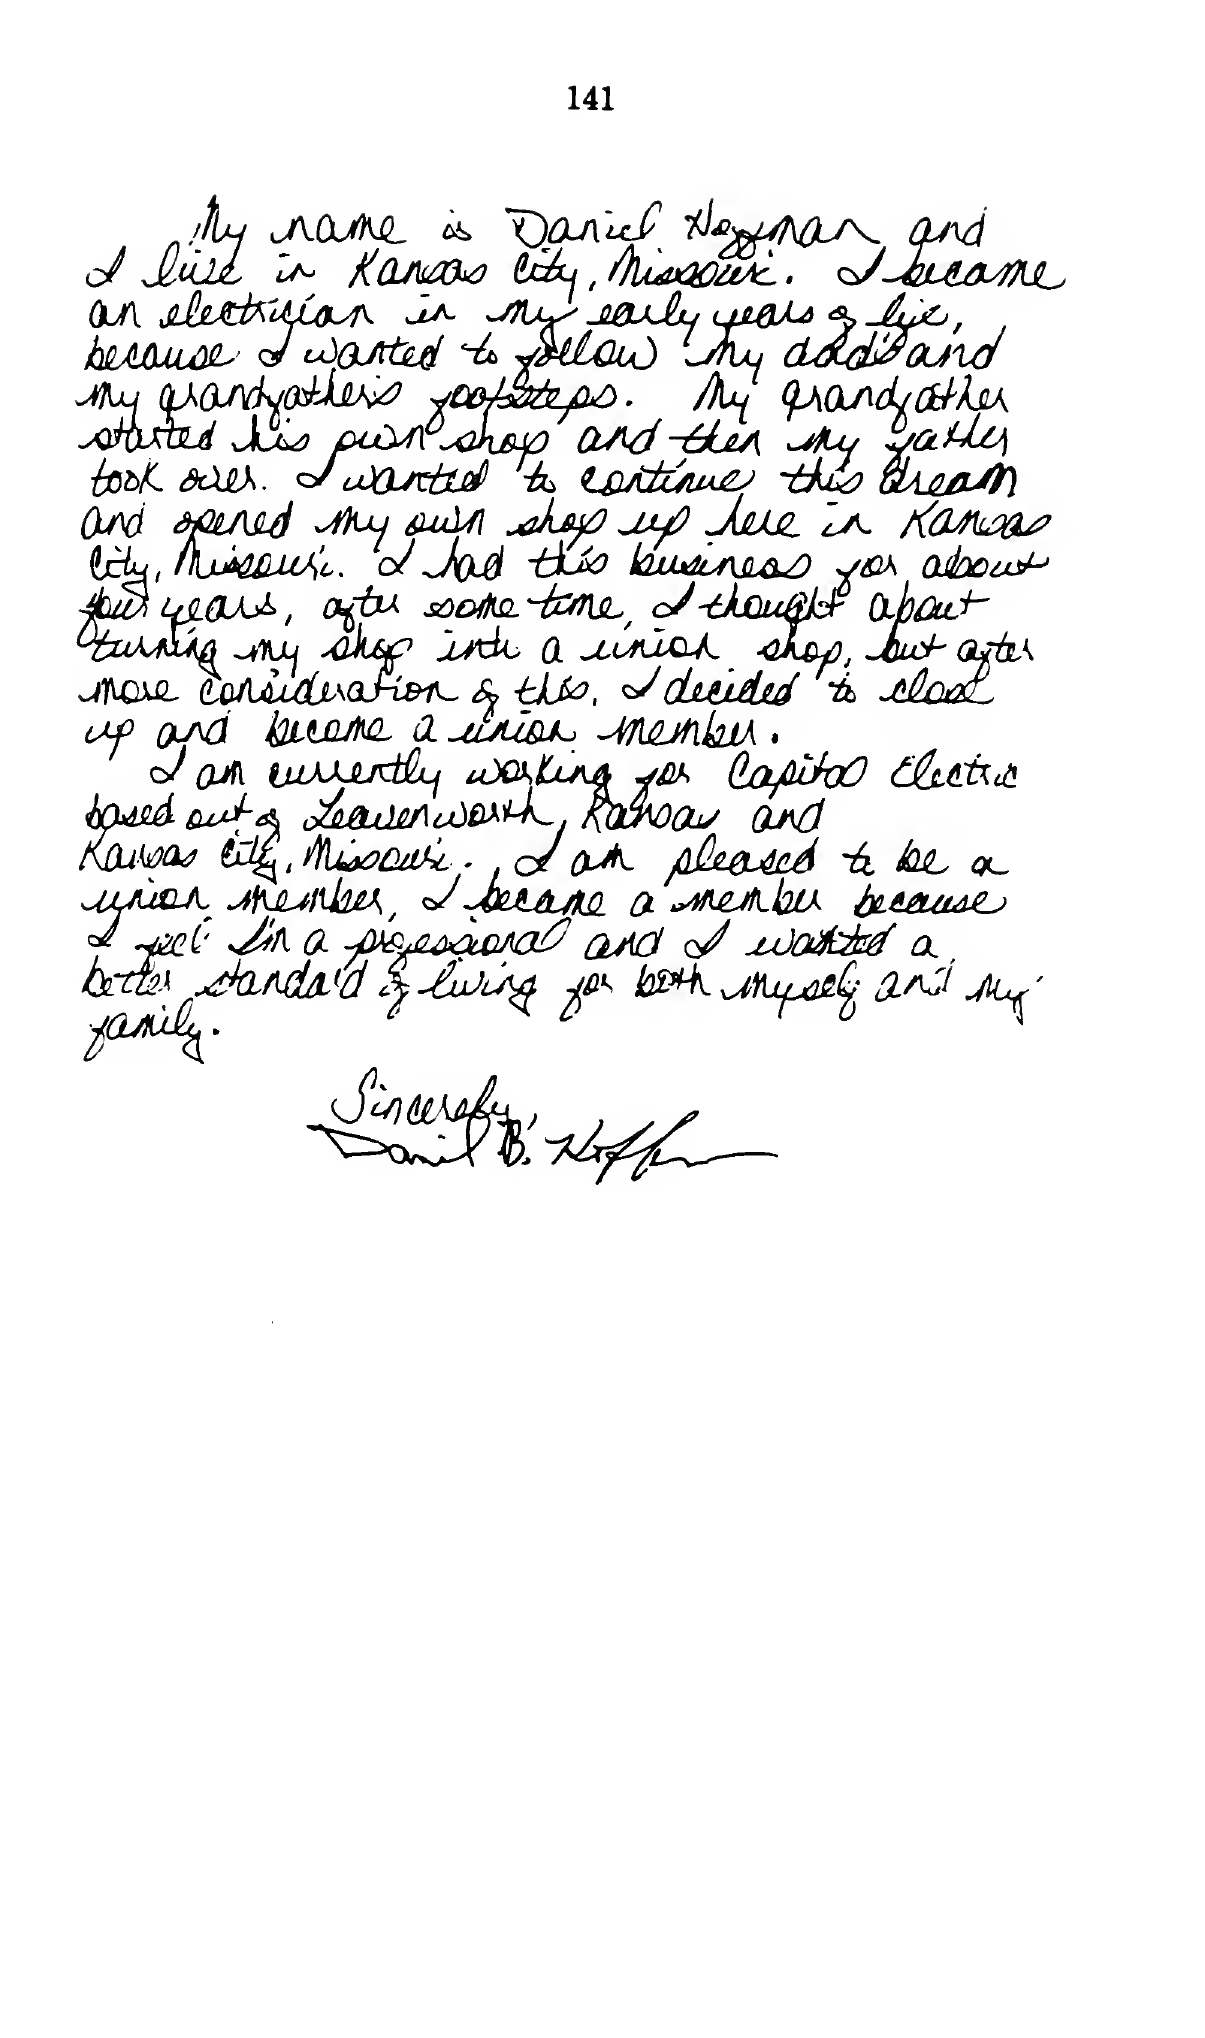 141
My name is Daniel Hoffman and
I live in Kansas City, Missouri. I became
an electrician in my early years of life,
because I wanted to follow my dad's and
my grandfather's footsteps. My grandfather
started his own shop and then my father
took over. I wanted to continue this dream
and opened my own shop up here in Kansas
City, Missouri. I had this business for about
four years, after some time, I thought about
turning my shop into a union shop, but after
more consideration of this, I decided to close
up and become a union member.
I am currently working for Capital Electric
based out of Leavenworth, Kansas and
Kansas City, Missouri. I am pleased to be a
union member, I became a member because
I feel I'm a professional and I wanted a
better standard of living for both myself and my
family.
Sincerely,
Daniel B. Hoffman